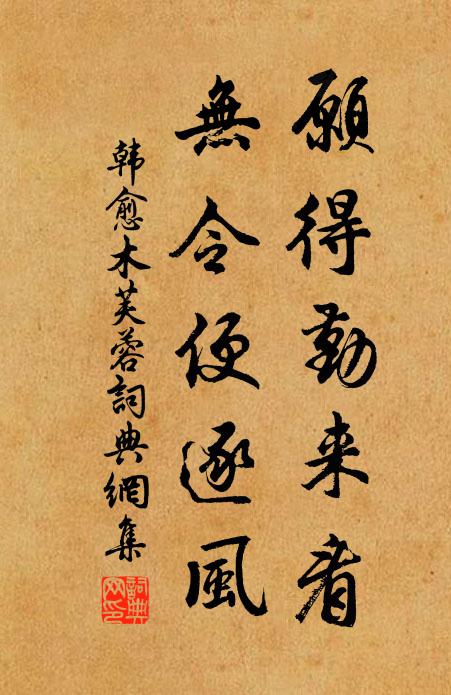 願得勤来看
無令便逐風
韩愈木芙蓉詞典網集
詞典
网印